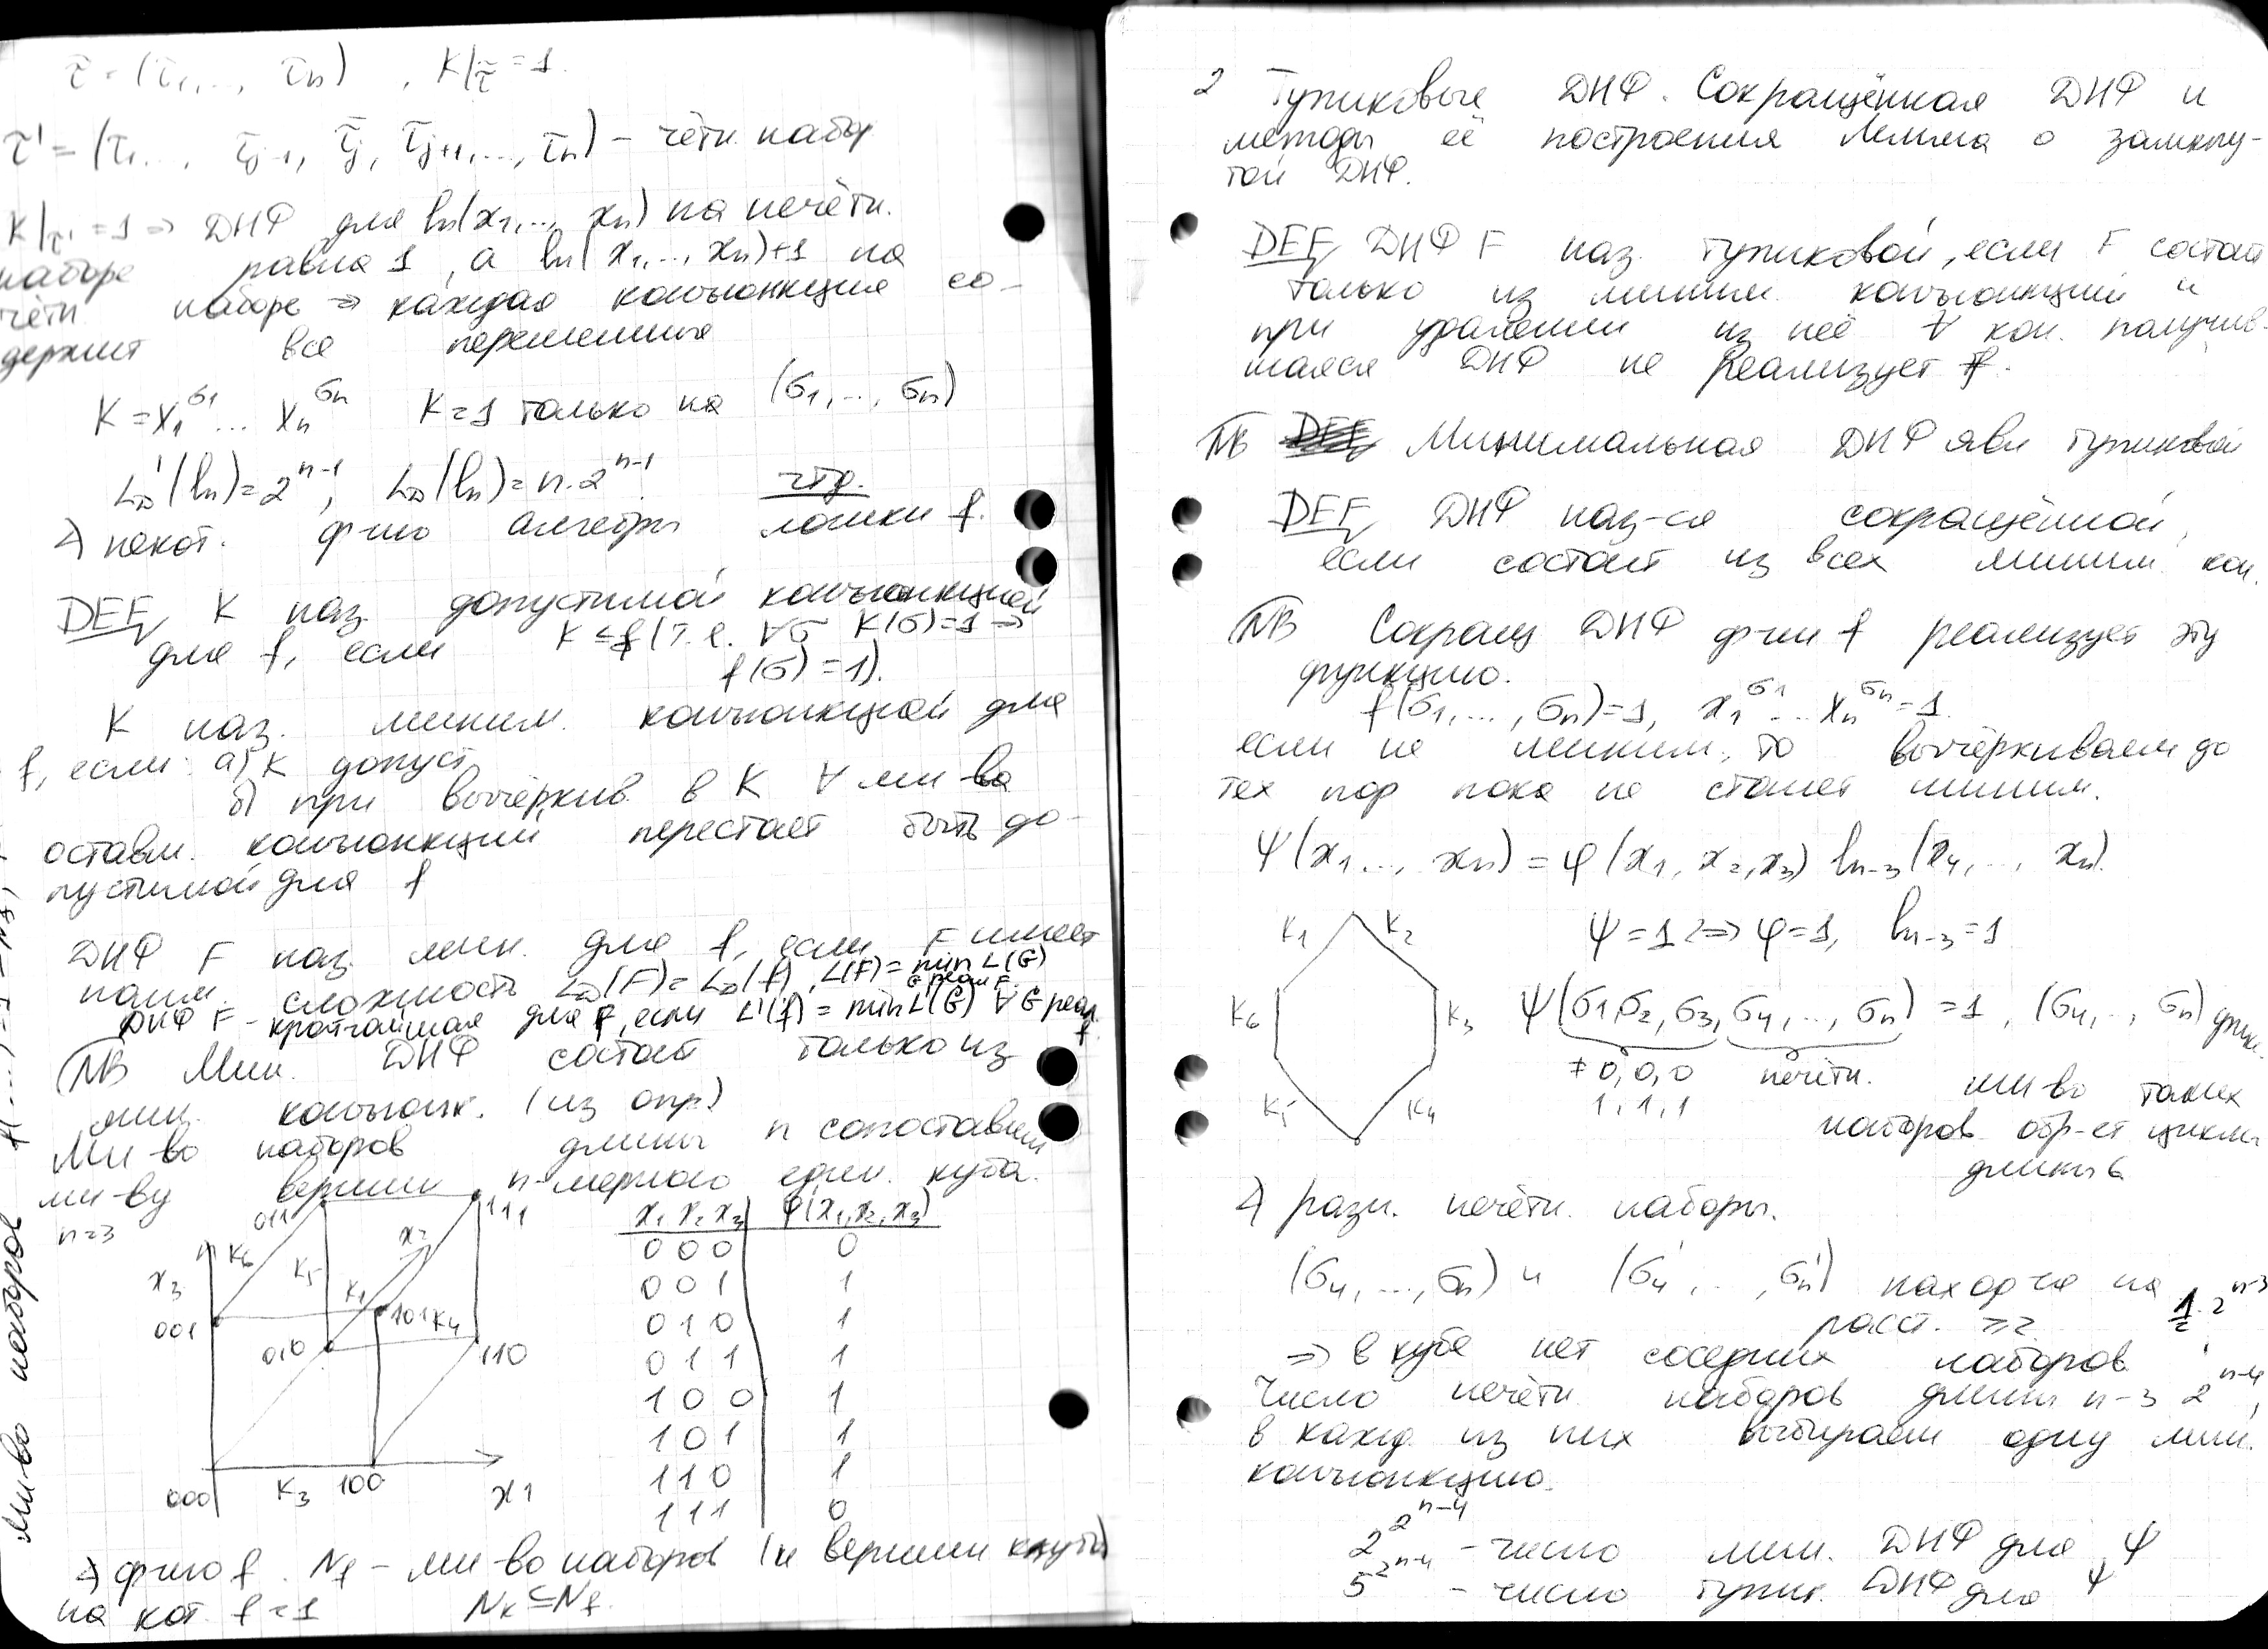 τ̃ = (τ₁, ..., τₙ) , K|τ̃ = 1.
τ' = (τ₁ ... , τⱼ₋₁, τ̄ⱼ, τⱼ₊₁, ..., τₙ) – чётн. набор
K|τ' = 1 ⇒ ДНФ для lₙ(x₁, ..., xₙ) на нечётн.
наборе равна 1, а lₙ(x₁, ..., xₙ)+1 на
чётн. наборе ⇒ каждая конъюнкция со-
держит все переменные
K = x₁^σ₁ ... xₙ^σₙ K=1 только на (σ₁, ..., σₙ)
L'_D(lₙ) = 2ⁿ⁻¹, L_D(lₙ) = n·2ⁿ⁻¹. чтд.
∠) некот. ф-ию алгебры логики f.
DEF K наз. допустимой конъюнкцией
для f, если K ≤ f (т.е. ∀σ K(σ)=1 ⇒
f(σ)=1).
K наз. миним. конъюнкцией для
f, если: а) K допуст.
б) при вычёркив. в K ∀ мн-ва
оставш. конъюнкций перестаёт быть до-
пустимой для f
ДНФ F наз. мин. для f, если F имеет
наим. сложность L_D(F) = L_D(f), L(F) = min L(G)
G реал F.
ДНФ F - кратчайшая для F, если L'(f) = min L'(G) ∀ G реал.
f
NB Мин. ДНФ состоит только из
мин. конъюнк. (из опр.)
Мн-во наборов длины n сопоставим
мн-ву вершин n-мерного един. куба.
n=3
011 111
x₃ K₆ K₅ K₁ x₂
001 101 K₄
010 110
000 K₃ 100 x₁
x₁ x₂ x₃ φ(x₁, x₂, x₃)
0 0 0 0
0 0 1 1
0 1 0 1
0 1 1 1
1 0 0 1
1 0 1 1
1 1 0 1
1 1 1 0
∠) ф-ию f. N_f – мн-во наборов (и вершин куба)
на кот. f=1 N_K ⊆ N_f.
мн-во наборов
2 Тупиковые ДНФ. Сокращённая ДНФ и
методы её построения Лемма о замкну-
той ДНФ.
DEF ДНФ F наз. тупиковой, если F состоит
только из миним. конъюнкций и
при удалении из неё ∀ кон. получив-
шаяся ДНФ не реализует f.
NB Минимальная ДНФ явл тупиковой
DEF ДНФ наз-ся сокращённой,
если состоит из всех миним. кон.
NB Сокращ ДНФ ф-ии f реализует эту
функцию.
f(σ₁, ..., σₙ)=1, x₁^σ₁ ... xₙ^σₙ = 1.
если не миним., то вычёркиваем до
тех пор пока не станет миним.
ψ(x₁ ..., xₙ) = φ(x₁, x₂, x₃) lₙ₋₃(x₄, ..., xₙ).
K₁ K₂
ψ=1 ⇔ φ=1, lₙ₋₃=1
K₆ K₃
ψ(σ₁, σ₂, σ₃, σ₄, ..., σₙ) = 1, (σ₄, .., σₙ) фикс.
≠ 0,0,0 нечётн.
1,1,1
K₅ K₄
мн-во таких
наборов обр-ет циклы
длины 6
∠) разн. нечётн. наборы.
(σ₄, ..., σₙ) и (σ₄', ..., σₙ') наход-ся на
расст. ≥2
⇒ в кубе нет соседних наборов
½·2ⁿ⁻³
Число нечётн наборов длины n-3 2ⁿ⁻⁴,
в кажд. из них выбираем одну мин.
конъюнкцию.
2^2ⁿ⁻⁴ – число мин. ДНФ для ψ
5^2ⁿ⁻⁴ – число тупик. ДНФ для ψ